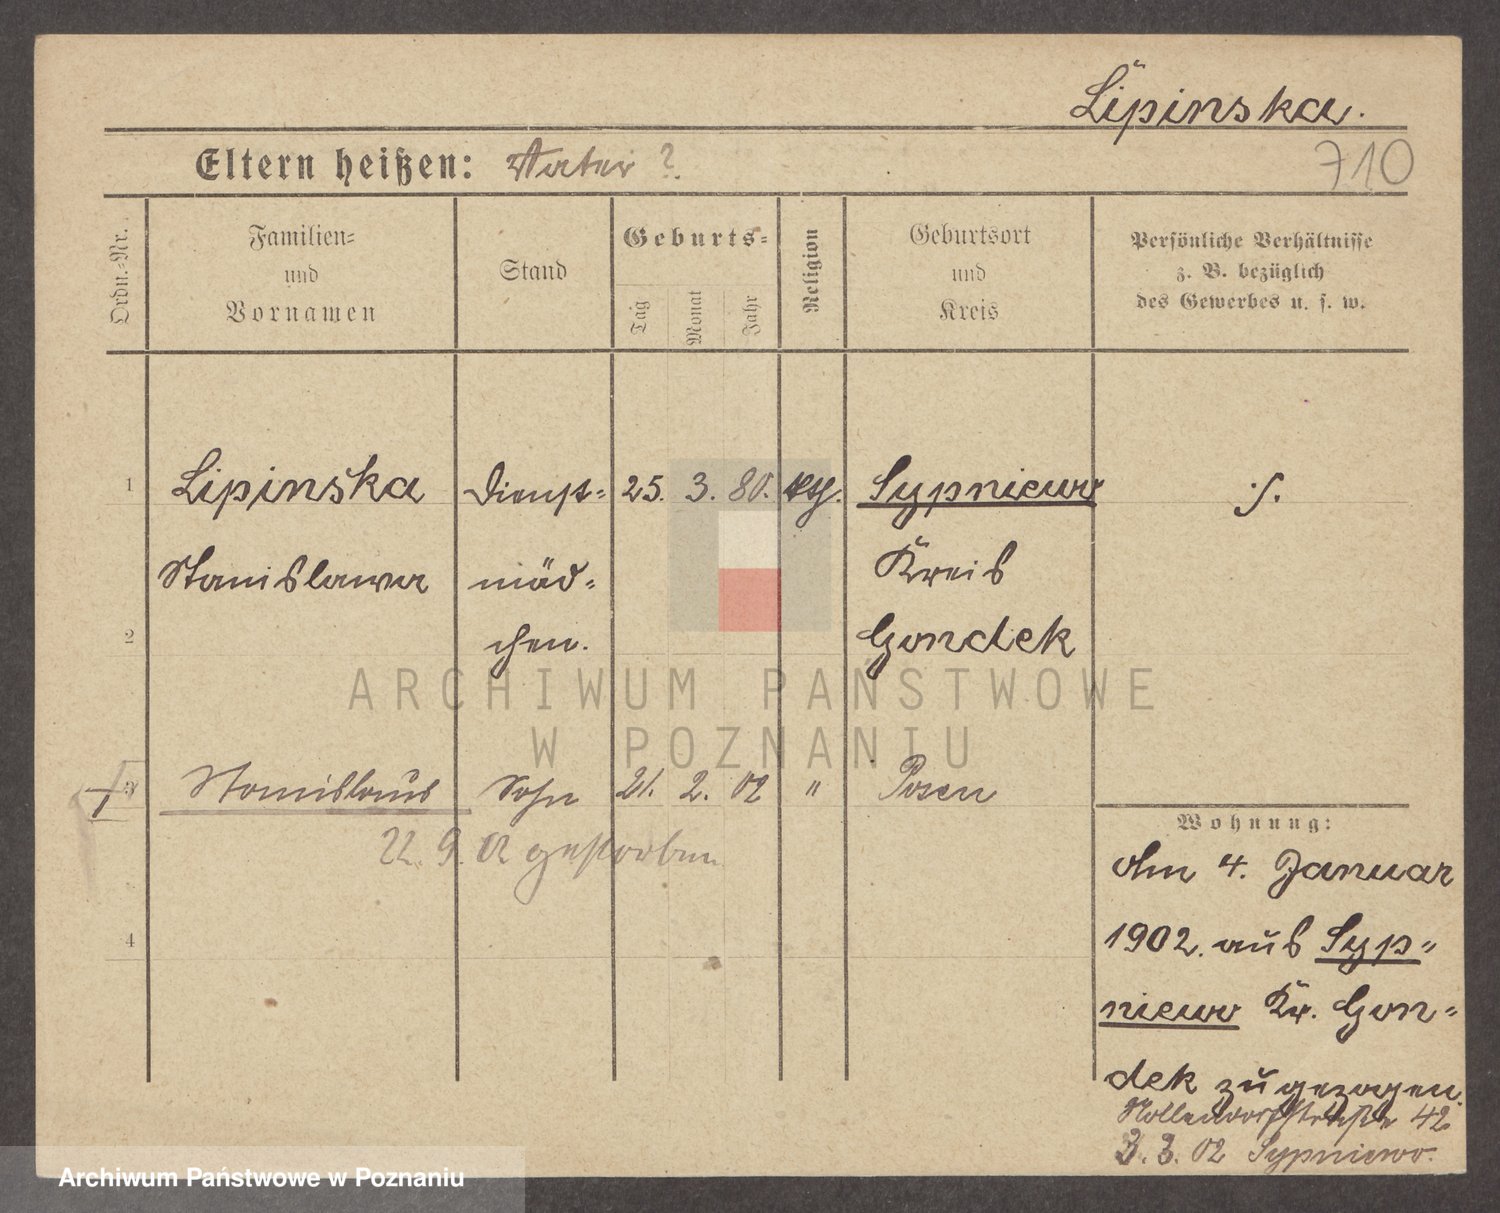 Lipinska.
710
Eltern heißen: Vater ?.
Ordn.-Nr.
Familien-
und
Vornamen
Stand
Geburts-
Tag
Monat
Jahr
Religion
Geburtsort
und
Kreis
Persönliche Verhältnisse
z. B. bezüglich
des Gewerbes u. s. w.
1 Lipinska Dienst- 25. 3. 80. kth. Sypniewo
Stanislawa mäd- Kreis
2 chen. Gondek
ARCHIWUM PAŃSTWOWE
W POZNANIU
3 Stanislaus Sohn 21. 2. 02 " Posen
22. 9. 02 gestorben
4
Wohnung:
Am 4. Januar
1902. aus Syp-
niewo Kr. Gon-
dek zugezogen.
Nollendorfstraße 42
3. 3. 02 Sypniewo.
Archiwum Państwowe w Poznaniu